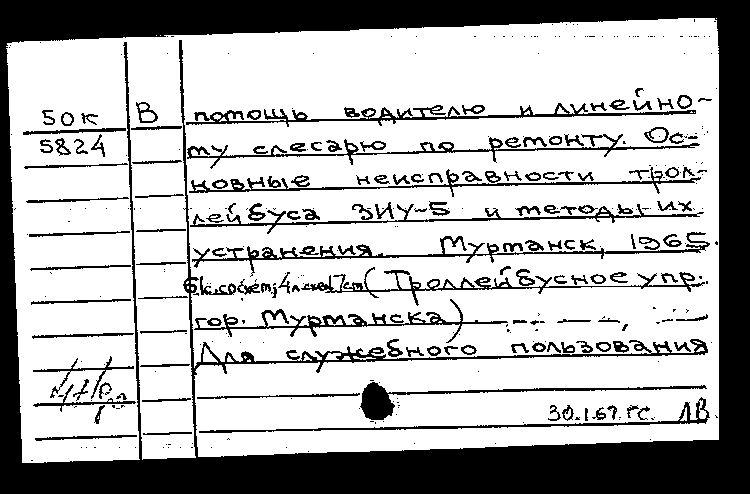 50к В помощь водителю и линейно-
5824 му слесарю по ремонту. Ос-
новные неисправности трол-
лейбуса ЗИУ-5 и методы их
устранения. Мурманск, 1965.
(Троллейбусное упр.
гор. Мурманска)
Для служебного пользования
30.1.67. ЛВ